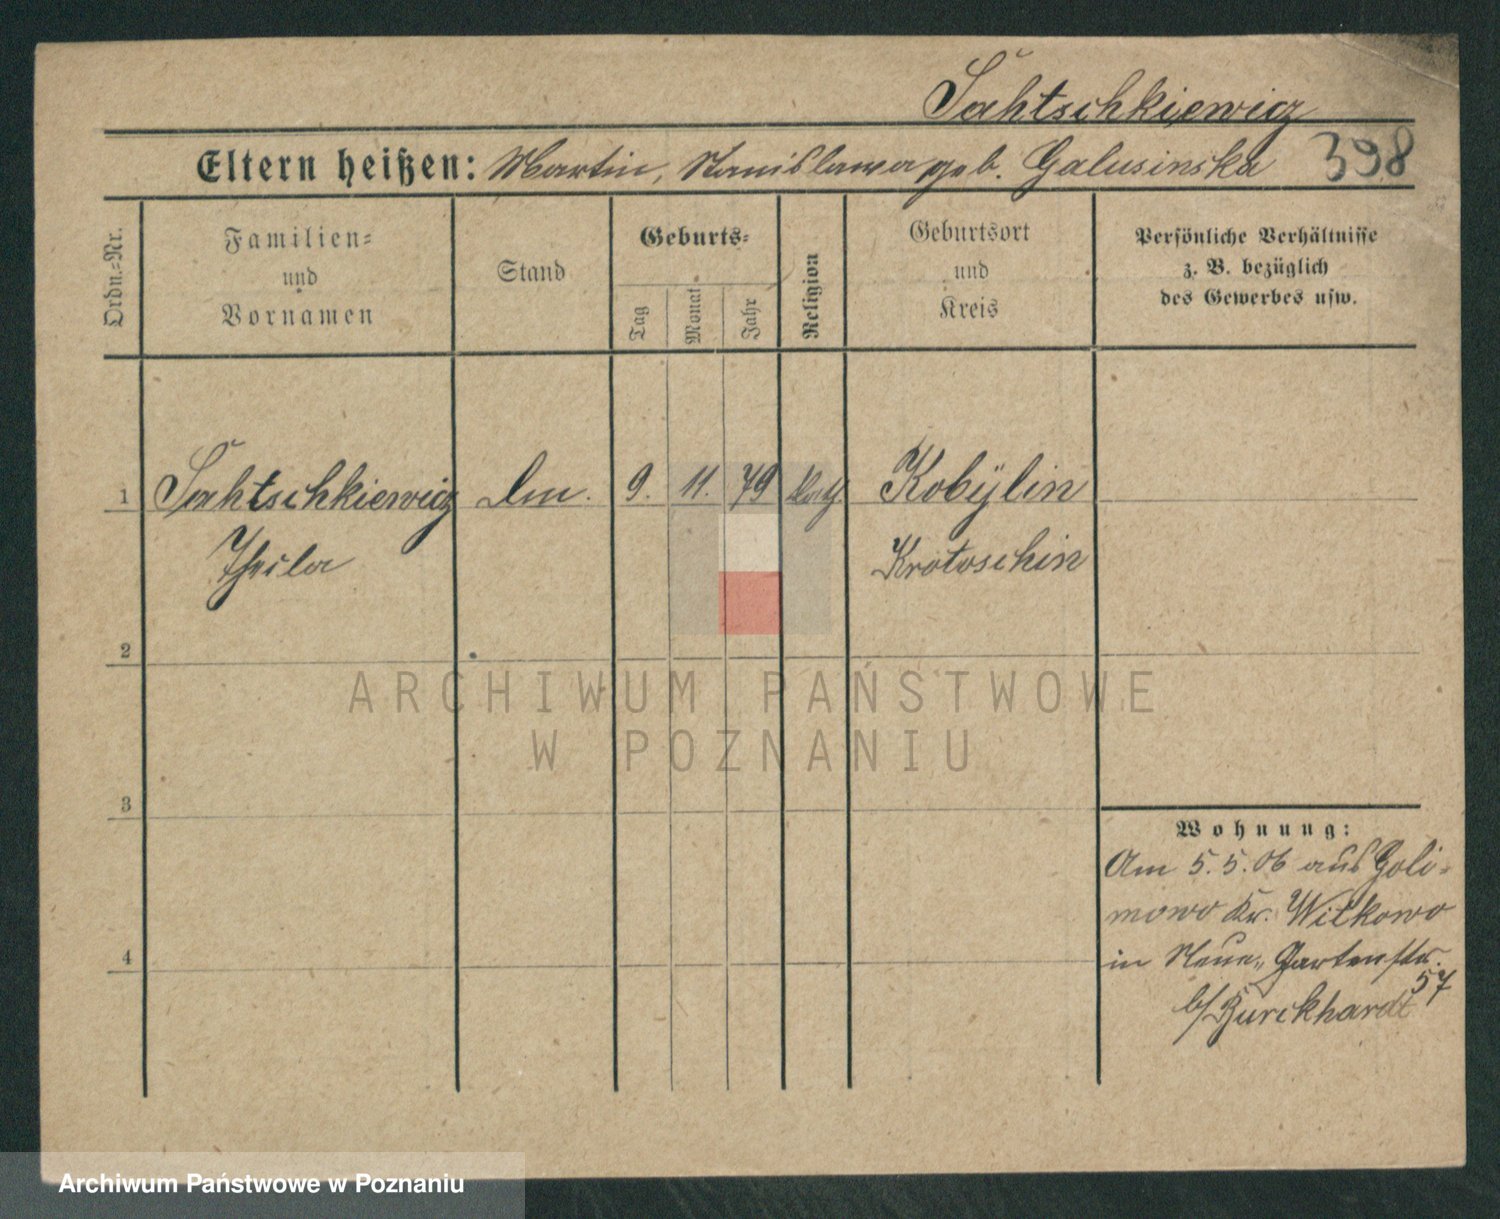 Sahtschkiewicz
Eltern heißen: Martin, Stanislawa geb. Galusinska 398
Ordn.-Nr.
Familien-
und
Vornamen
Stand
Geburts-
Tag
Monat
Jahr
Religion
Geburtsort
und
Kreis
Persönliche Verhältnisse
z. B. bezüglich
des Gewerbes usw.
1 Sahtschkiewicz 9. 11. 79 kath. Kobylin
Thesla Krotoschin
2
ARCHIWUM PAŃSTWOWE
W POZNANIU
3
Wohnung:
Am 5.5.06 aus Goli-
mowo Kr. Witkowo
4
in Neue Gartenstr.
57
b/ Burckhardt
Archiwum Państwowe w Poznaniu